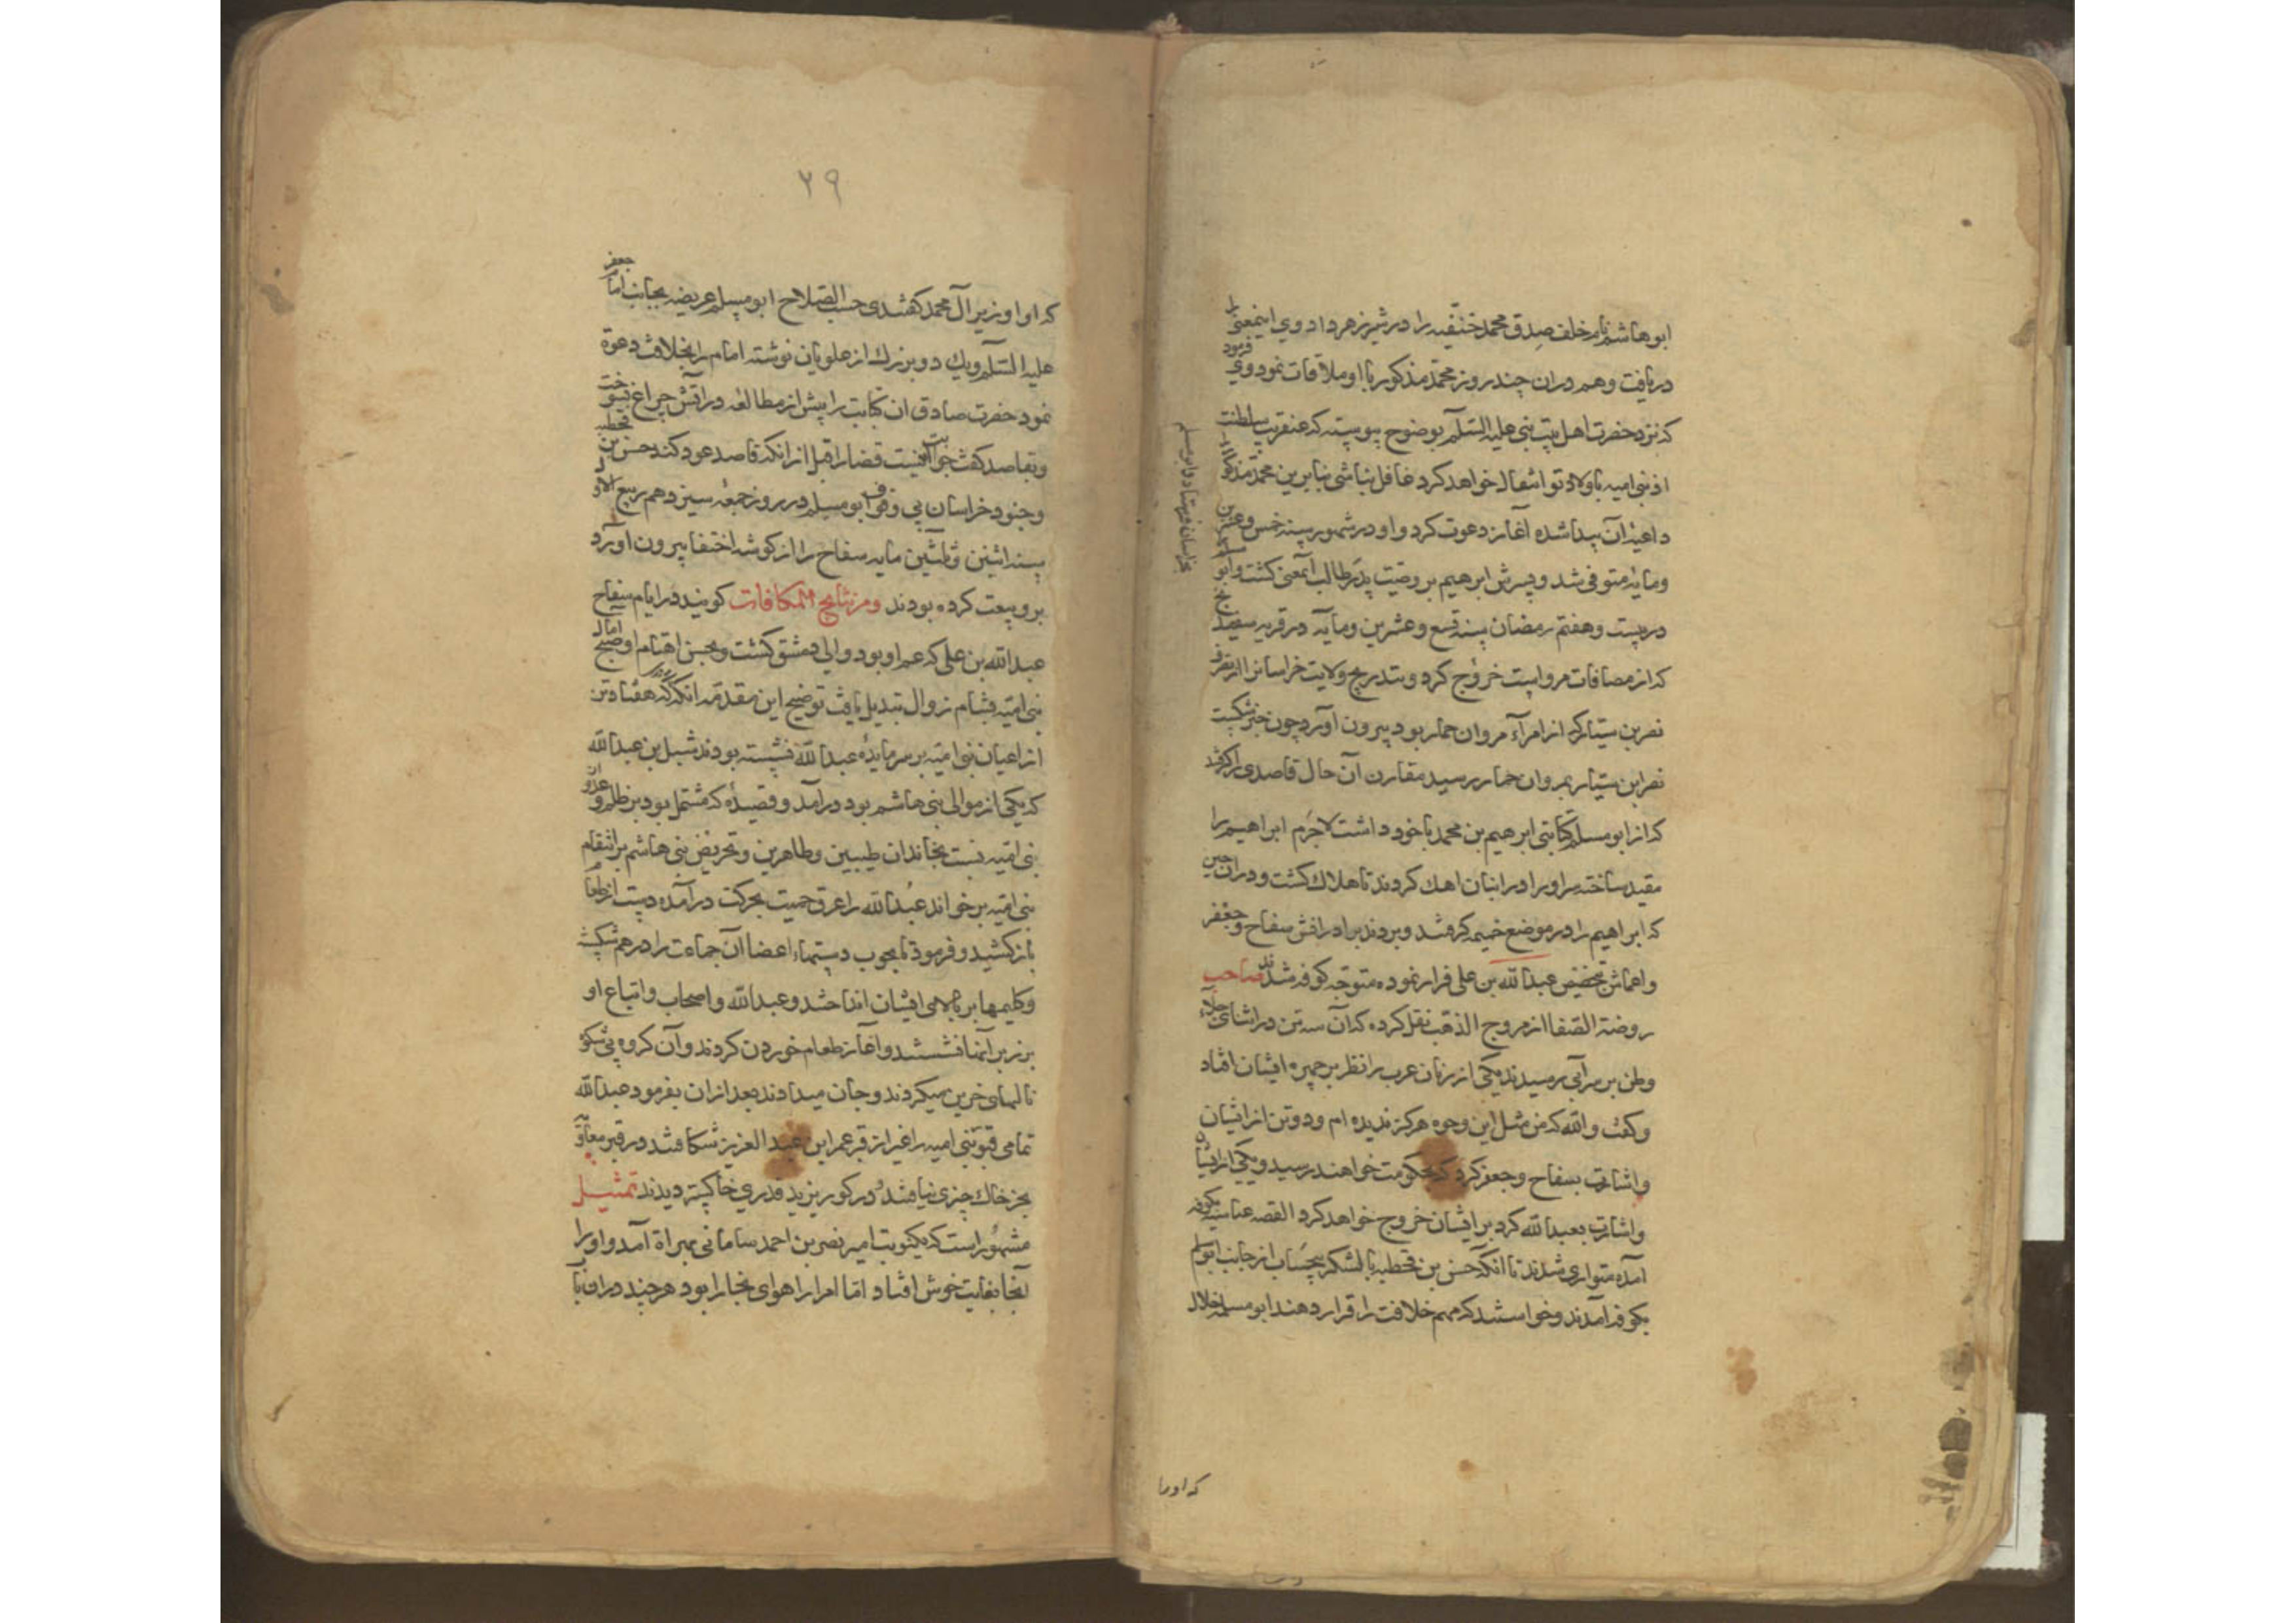 ابوهاشم نام خلف صدق محمد حنفیه را در شیر زهر داد و وی اینمعنی را
دریافت و هم دران چند روز محمد مذکور با او ملاقات نمود و وی فرمود
که نزد حضرت اهل بیت نبی علیه السلام بوضوح پیوسته که عنقریب سلطنت
از بنی امیه باولاد تو انتقال خواهد کرد غافل نباشی بنابرین محمد مذکور را
داعیه آن پیدا شده آغاز دعوت کرد و او در شهور سنه خمس و عشرین
ومایه متوفی شد و پسرش ابرهیم بر وصیت پدر طالب آنمعنی کشت وابو مسلم
در بیست و هفتم رمضان سنه تسع و عشرین و مایه در قریه سفیدنج
که از مضافات مرو است خروج کرد و بتدریج ولایت خراسانرا از تصرف
نصر بن سیار که از امرآء مروان حمار بود بیرون آورد چون خبر شکست
نصر ابن سیار بمروان حمار رسید مقارن آن حال قاصدی را کرفتند
که از ابو مسلم کتابتی ابرهیم بن محمد با خود داشت لاجرم ابراهیم را
مقید ساخته سر او را در انبان اهک کردند تا هلاک کشت و دران حین
که ابراهیم را در موضع خیمه کرفتند و بردند برادرانش سفاح و جعفر
و اعمامش بتخصیص عبدالله بن علی فرار نموده متوجه کوفه شدند صاحب
روضة الصفا از مروج الذهب نقل کرده که آن سه تن در اثنای جلاء
وطن بر سر آبی رسیدند یکی از زنان عرب را نظر بر چهره ایشان افتاد
و کفت والله که من مثل این وجوه هرکز ندیده ام و دو تن از ایشان
و اشارت بسفاح و جعفر کرد که بحکومت خواهند رسید و یکی از ایشان
و اشارت بعبدالله کرد بر ایشان خروج خواهد کرد القصه عباسیه بکوفه
آمده متواری شدند تا آنکه حسن بن قحطبه با لشکر بیحساب از جانب ابو مسلم
بکوفه آمدند و خواستند که مهم خلافت را قرار دهند ابو سلمه خلال
بخراسان فرستاد و ابو مسلم
که اورا
۲۹
که او را وزیر آل محمد کفتندی حسب الصلاح ابو مسلم عریضه بجانب امام جعفر
علیه السلام و یک دو بزرک از علویان نوشته امام را بخلافت دعوة
نمود حضرت صادق ان کتابت را پیش از مطالعه در آتش چراغ بسوخت
و بقاصد کفت جوابت اینست قضا را قبل از انکه قاصد عود کند حسن بن قحطبه
و جنود خراسان بی وقوف ابو مسلم در روز جمعه سیزدهم ربیع الاول
سنه اثنین و ثلثین مایه سفاح را از کوشه اختفا بیرون آورد
بر و بیعت کرده بودند و من نتایج المکافات کویند در ایام سفاح
عبدالله بن علی که عم او بود والی دمشق کشت و بحسن اهتمام او صبح آمال
بنی امیه بشام زوال تبدیل یافت توضیح این مقدمه انکه هفتاد تن
از اعیان بنی امیه بر سر مایدهٔ عبدالله نشسته بودند شبل بن عبدالله
که یکی از موالی بنی هاشم بود درآمد و قصیدهٔ که مشتمل بود بر ظلم و عدوان
بنی امیه نسبت بخاندان طیبین و طاهرین و تحریض بنی هاشم بر انتقام
بنی امیه برخواند عبدالله را عرق حمیت بحرکت درآمده دست از طعام
بازکشید و فرمود تا بچوب دستها اعضا آن جماعت را درهم شکستند
و کلیمها بر بالای ایشان انداختند و عبدالله و اصحاب و اتباع او
بر زبر آنها نشستند و آغاز طعام خوردن کردند و آن کروه بی شکوه
نالهای حزین میکردند و جان میدادند بعد از ان بفرمود عبدالله
تمامی قبور بنی امیه را غیر از قبر عمر ابن عبد العزیز شکافتند در قبر معاویه
بجز خاک چیزی نیافتند و در کور یزید قدری خاکستر دیدند تمثیل
مشهور است که یکنوبت امیر نصر بن احمد سامانی بهراة آمد و او را
آنجا بغایت خوش افتاد اما امرا را هوای بخارا بود هرچند دران باب